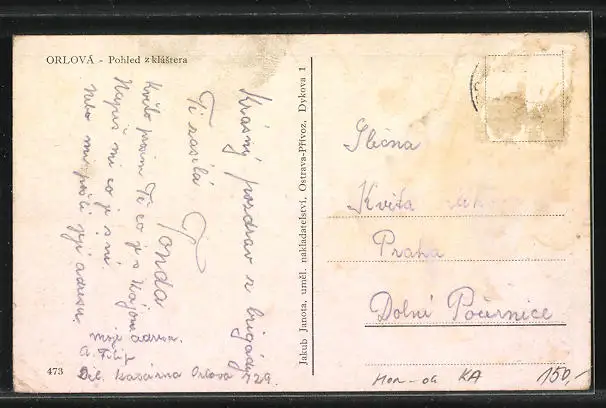 ORLOVÁ - Pohled z kláštera
Krásný pozdrav z brigády
Ti zasílá
Tonda
Květo prosím Tě co je s
Napiš mi co je s ní.
Nebo mi pošli její adresu
moje adresa.
A. Filip
Děl. kasárna Orlova 729.
473
Jakub Janota, uměl. nakladatelství, Ostrava-Přívoz, Dykova 1
Slečna
Květa
Praha
Dolní Počernice
KA
150,-